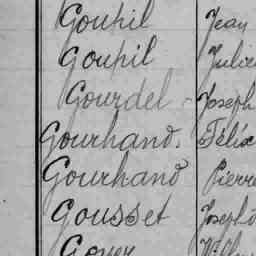 Goupil Jean
Goupil Julie
Gourdel Joseph
Gourhand. Félix
Gourhand Pierre
Gousset Joseph
Goyer